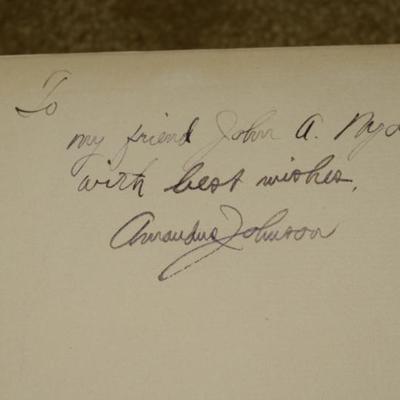 To
my friend John A.
with best wishes,
Amandus Johnson